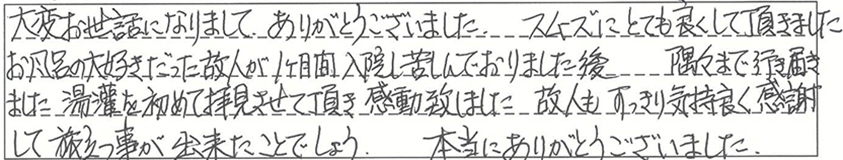 大変お世話になりまして ありがとうございました. スムーズにとても良くして頂きました
お風呂の大好きだった故人が1ヶ月間入院し苦しんでおりました後 隅々まで行き届き
ました 湯灌を初めて拝見させて頂き 感動致しました 故人も すっきり気持良く感謝
して 旅立つ事が 出来たことでしょう. 本当にありがとうございました.